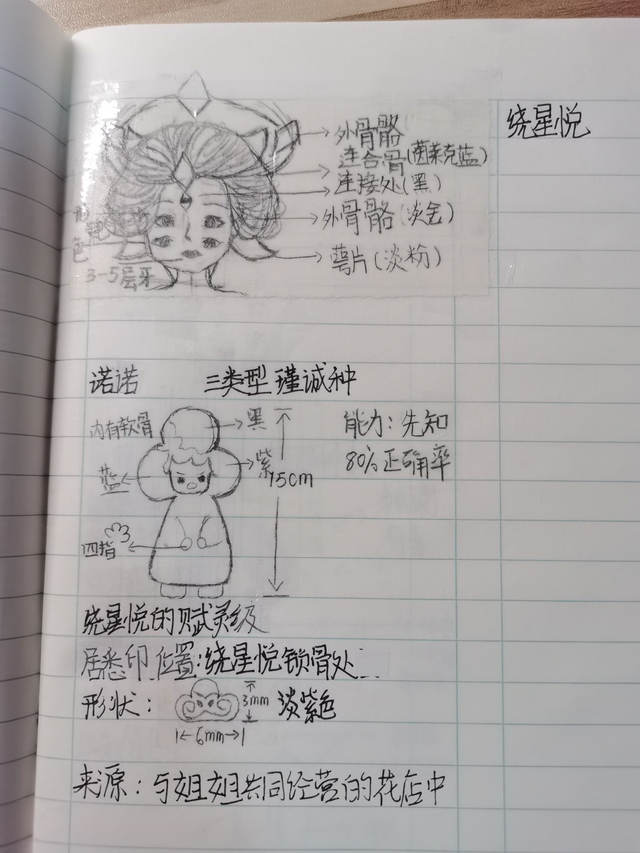 绕星悦
外骨骼
连合骨(茵莱克蓝)
连接处(黑)
外骨骼(淡金)
萼片(淡粉)
色
3-5层牙
诺诺 三类型 瑾诚种
内有软骨
黑
能力:先知
紫
80%正确率
蓝
15cm
四指
绕星悦的赋灵级
居悉印位置:绕星悦锁骨处
形状:
3mm
淡紫色
6mm
来源:与姐姐共同经营的花店中